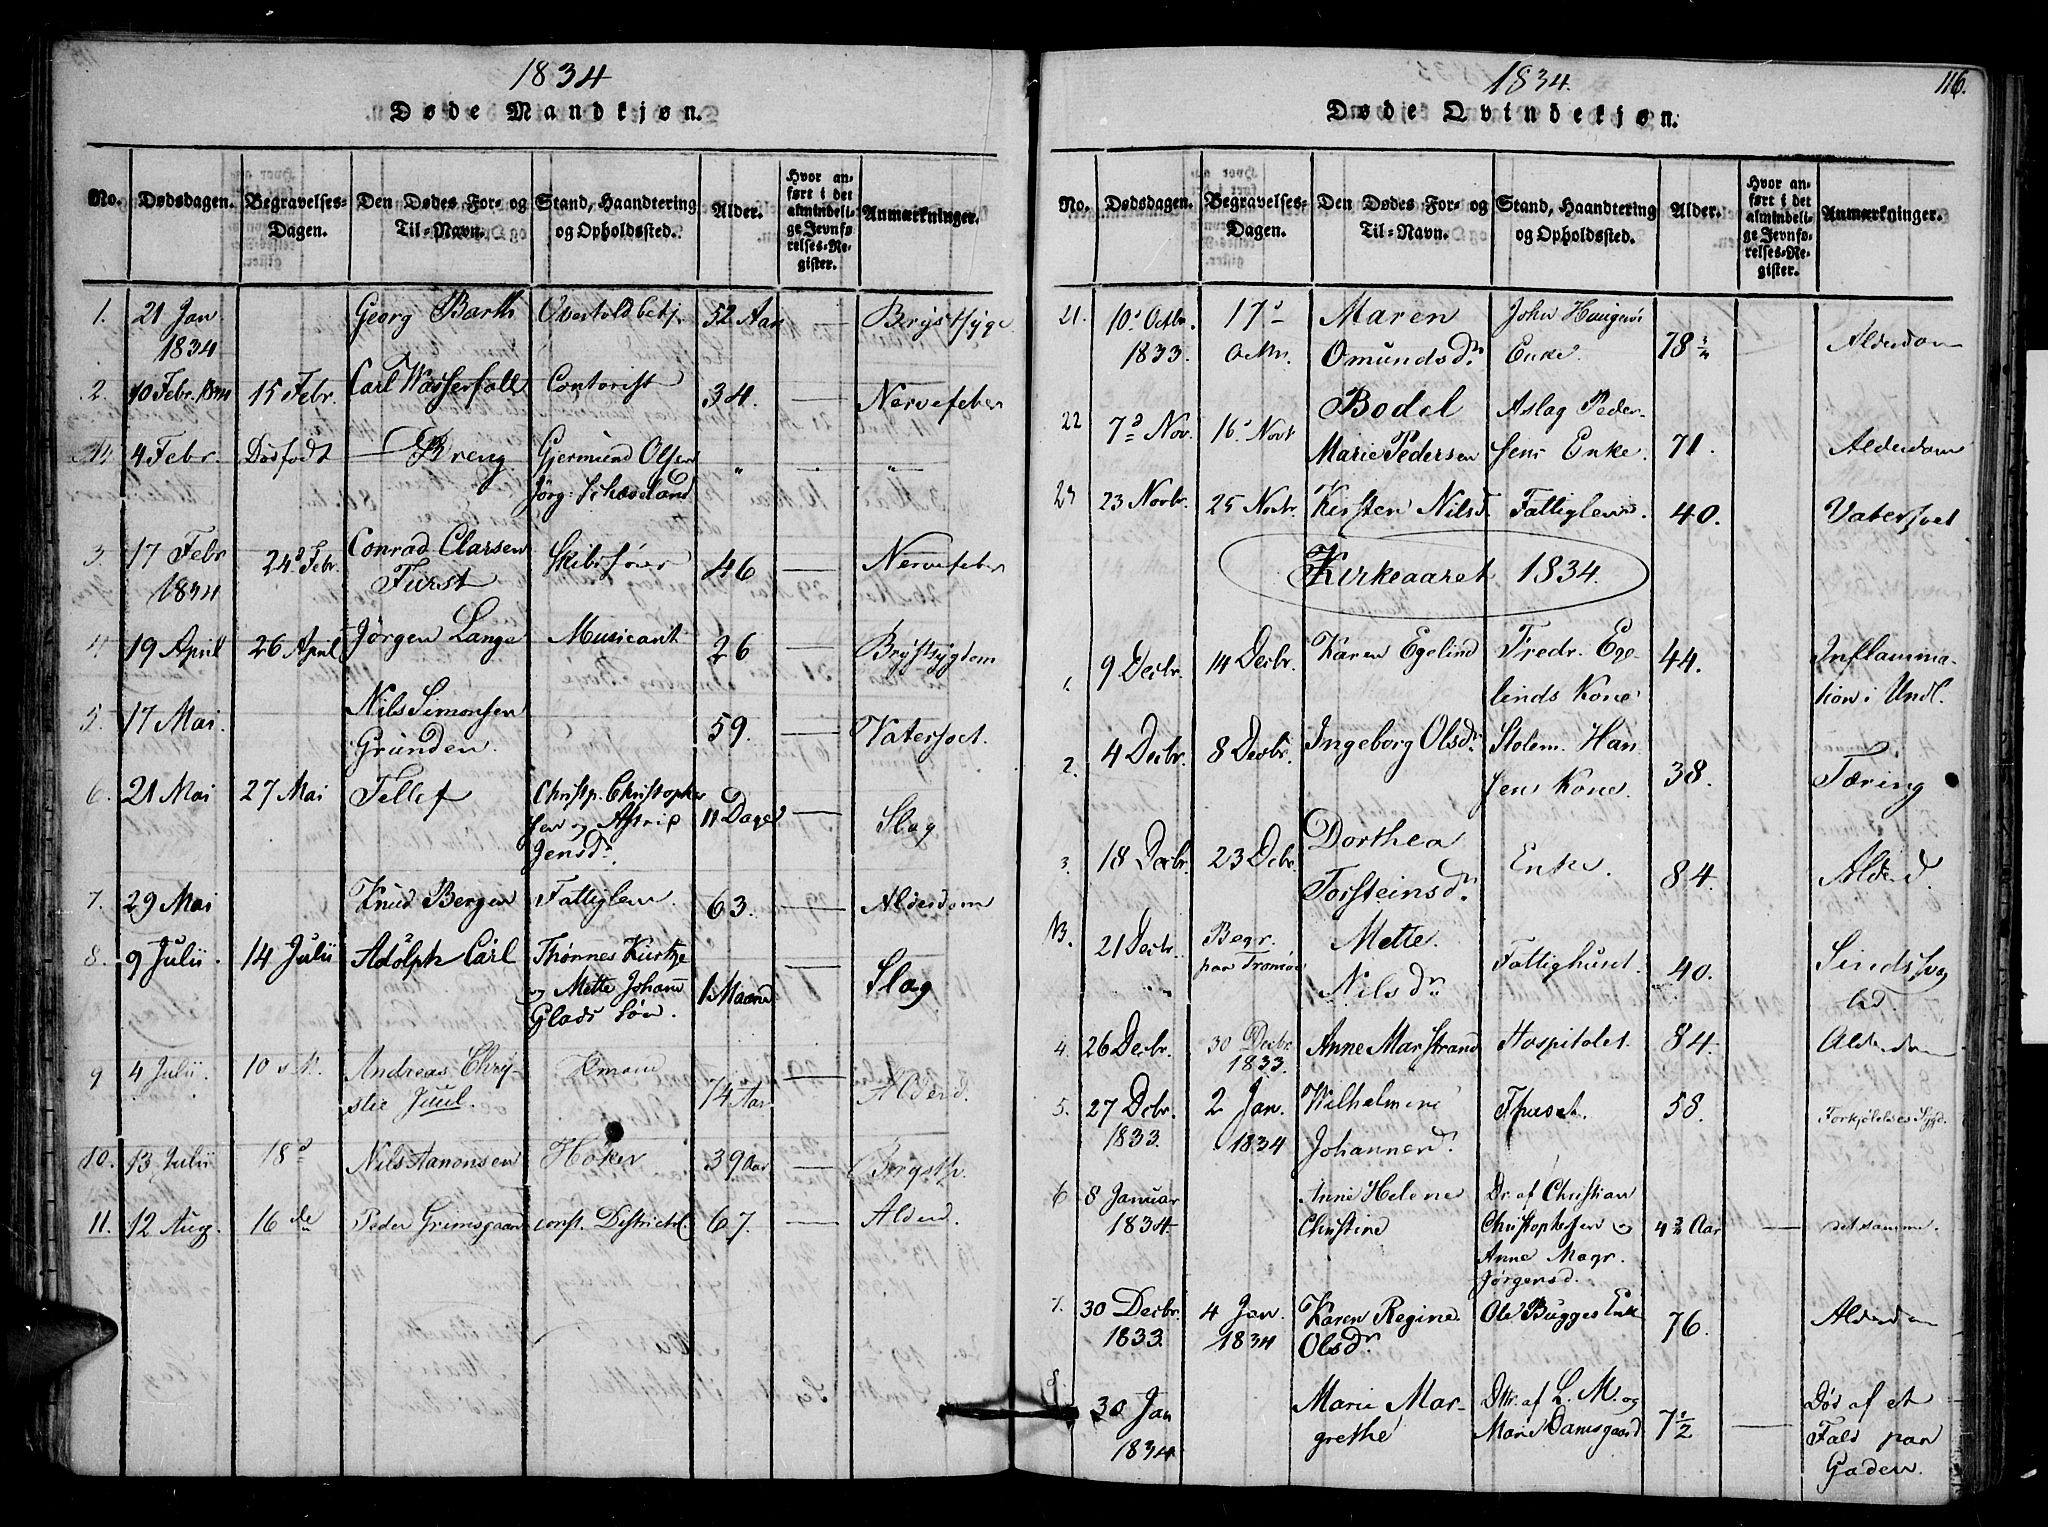 1834
Døde Mandkjøn.
No. Dødsdagen. Begravelses-Dagen. Den Dødes For- og Til-Navn. Stand, Haandtering og Opholdssted. Alder. Hvor anført i det almindelige Jevnførelses-Register. Anmærkninger.
1. 21 Jan 1834 Georg Barth Overtoldbetj. 52 Aar — Brystsyge
2. 10 Febr. 1834 15 Febr. Carl Wasserfall Contorist 34. — Nervefeber
4 Febr. Dødfødt Dreng Gjermund Olsen " . "
3. 17 Febr 1834 24d Febr. Conrad Clausen Furst Skibsfører 46 — Nervefeber
4. 19 April 26 April Jørgen Lange Musicant 26 — Brystsygdom
5. 17 Mai Nils Simonsen Grunden. 59. — Vatersoet.
6. 21 Mai 27 Mai Tellef Christp. Christophersen og Jensdr. 11 Dage — Slag
7. 29 Mai Knud Bergen Fattiglem. 63. — Alderdom
8. 9 Julii. 14 Julii Adolph Carl Thønnes Kurtze og Mette Johanne Glads Søn. 1 Maaned — Slag
9 4 Julii. 10 Andreas Chrystie Juul. 74 Aar — Alderd.
10. 13 Julii 18d Nils Aanonsen Høker 39 Aar — Brysts.
11. 12 Aug. 16de Peder Grimsgaar const. District. 67. — Alderd.
1834.
116.
Døde Qvindekjøn.
No. Dødsdagen. Begravelses-Dagen. Den Dødes For- og Til-Navn. Stand, Haandtering og Opholdssted. Alder. Hvor anført i det almindelige Jevnførelses-Register. Anmærkninger.
21. 10d Octbr. 1833. 17d Octbr. Maren Omundsdr. John Haugens Enke. 78 3/4 Alderdom
22 7d Nov. 16d Novb Bodel Marie Pedersen Aslag Pedersens Enke. 71. Alderdom
23 23 Novbr. 25 Novbr. Kirsten Nilsd. Fattiglem. 40. Vatersoet
Kirkeaaret 1834.
1. 9 Decbr. 14 Decbr. Karen Egelind Fredr. Egelinds Kone 44. Inflammation i Undl.
2. 4 Decbr. 8 Decbr. Ingeborg Olsdr. Stolem. Hansens Kone. 38. Tæring
3. 18 Decbr. 23 Decbr Dorthea Torsteinsdr. Enke. 84. Alderd.
NB. 21 Decbr. Begr. paa Tromøe Mette Nilsdr. Fattighuset. 40.
4. 26 Decbr. 30 Decbr. 1833. Anne Marstrand Hospitalet. 84. Alderdom
5. 27 Dcbr. 1833. 2 Jan. 1834 Wilhelmine Johannesd. 58. Forkjølelses Sygd.
6 8 Januar 1834. Anne Helene Christine Dr. af Christian Christophersen og Anne Magr. Jørgensd. 4 3/4 Aar — det samme.
7. 30 Decbr. 1833. 4 Jan. 1834 Karen Regine Olsdr. Ole Bugges Enke 76. Alderdom
8 30 Jan 1834 Marie Margrethe Dttr. af L. M. og Marie Damsgaard 7 1/2 — Død af et Fald paa Gaden.